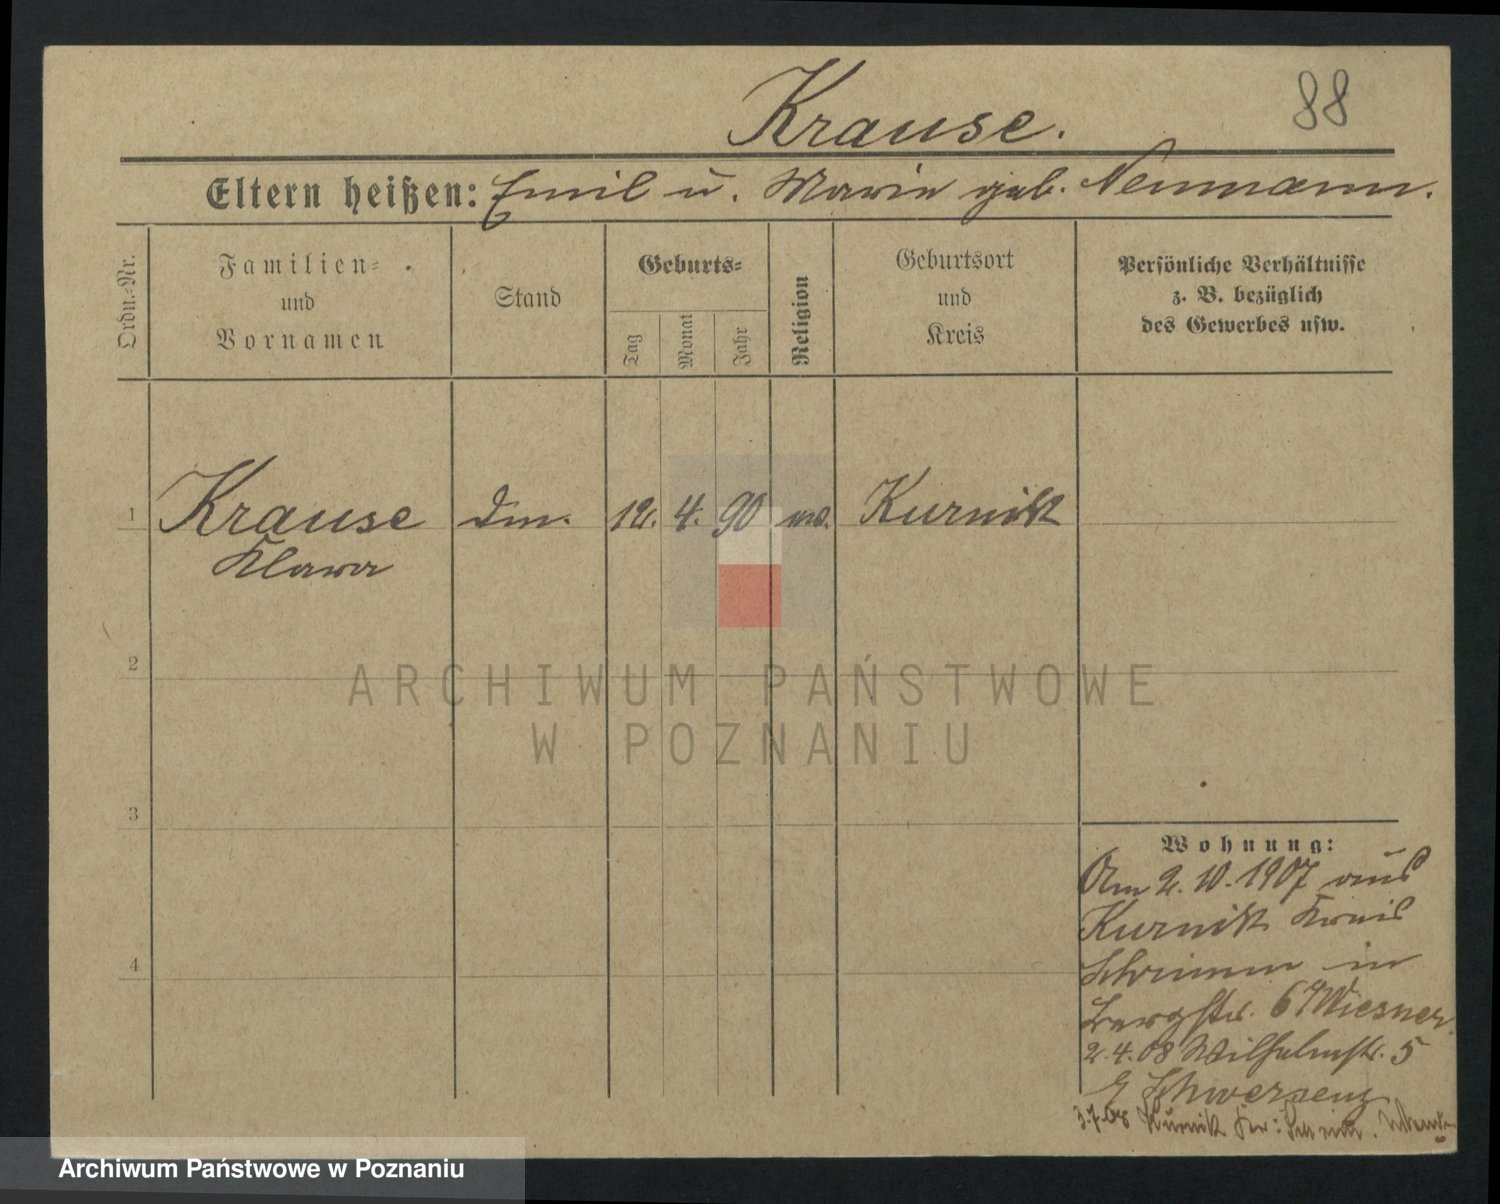 Krause.
88
Eltern heißen: Emil u. Marie geb. Neumann.
Ordn.-Nr.
Familien-
und
Vornamen
Stand
Geburts-
Tag
Monat
Jahr
Religion
Geburtsort
und
Kreis
Persönliche Verhältnisse
z. B. bezüglich
des Gewerbes usw.
1
Krause
Klara
12. 4. 90
Kurnik
2
3
4
Wohnung:
Am 2. 10. 1907 aus
Kurnik Kreis
Schrimm in
Bergstr. 6 Wiesner.
2. 4. 08 Wilhelmstr. 5
Schwersenz
3. 7. 08 Kurnik Kr: Schrim.
ARCHIWUM PAŃSTWOWE
W POZNANIU
Archiwum Państwowe w Poznaniu